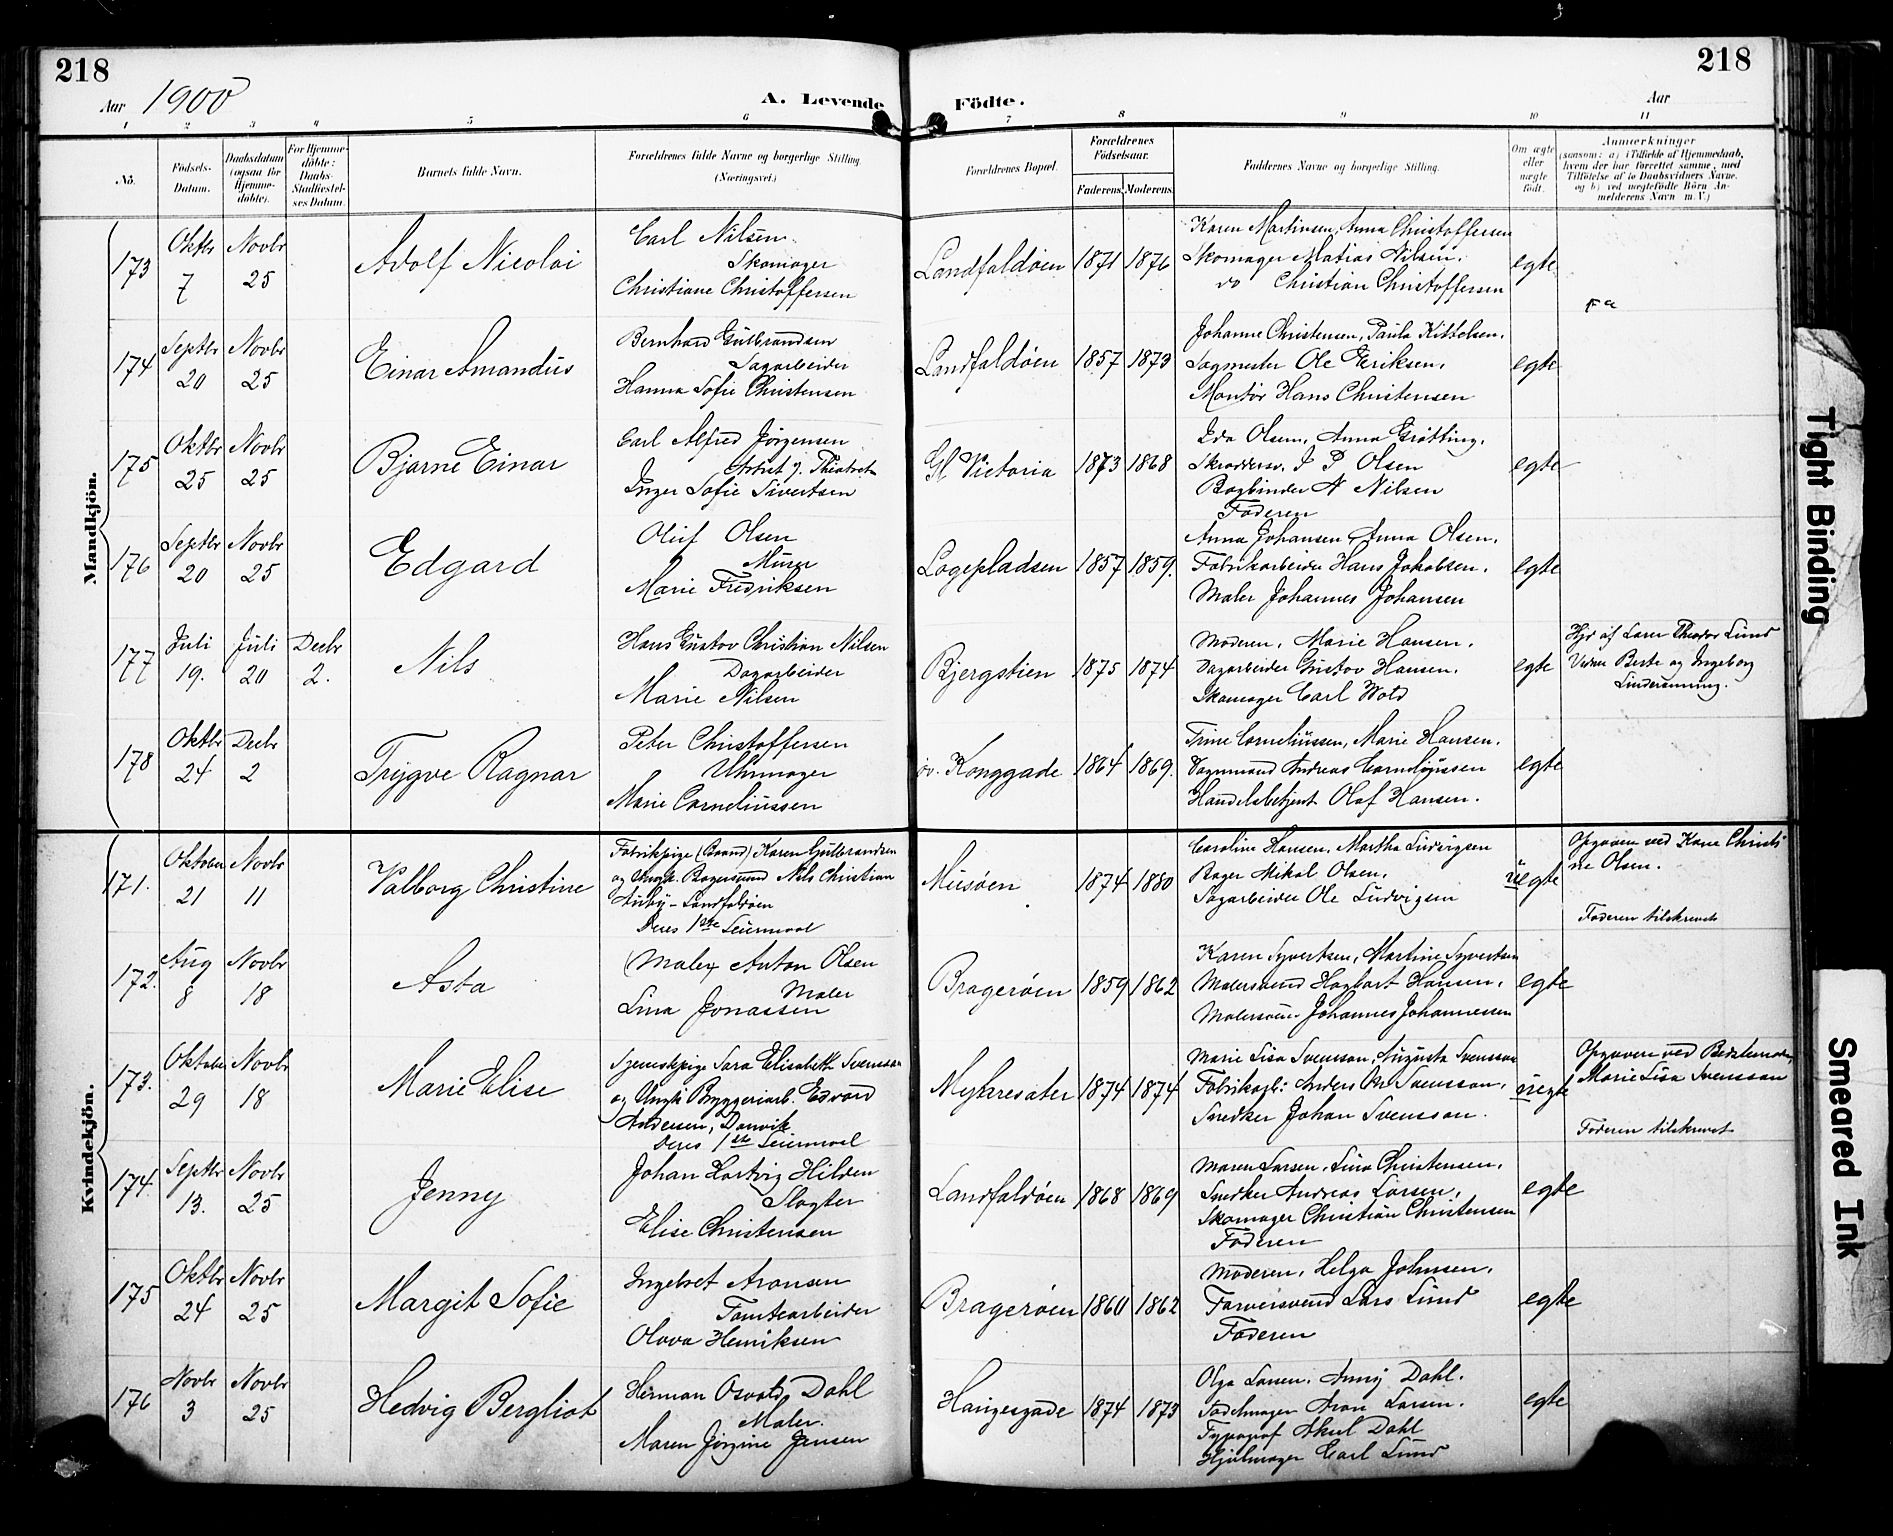 218
218
Aar 1900
A. Levende Födte.
Aar
1 2 3 4 5 6 7 8 9 10 11
No.
Födsels-Datum.
Daabsdatum (ogsaa for Hjemme-döbte).
For Hjemme-döbte: Daabs-Stadfæstel-ses Datum.
Barnets fulde Navn.
Forældrenes fulde Navne og borgerlige Stilling. (Næringsvei.)
Forældrenes Bopæl.
Forældrenes Födselsaar.
Faderens. Moderens.
Faddernes Navne og borgerlige Stilling.
Om ægte eller uægte födt.
Anmærkninger
(saasom: a) i Tilfælde af Hjemmedaab, hvem der har forrettet samme, med Tilföielse af to Daabsvidners Navne, og b) ved uægtefödte Börn An-melderens Navn m. V.)
Mandkjön.
173 Oktbr 7 Novbr 25
Adolf Nicolai
Carl Nilsen
Skomager
Christiane Christoffersen
Landfaldøen 1871 1876
Karen Martinsen, Anna Christoffersen
Skomager Matias Nilsen,
do Christian Christoffersen
egte
174 Septbr 20 Novbr 25
Einar Amandus
Bernhard Gulbrandsen
Sagarbeider
Hanna Sofie Christensen
Landfaldøen 1857 1873
Johanne Christensen, Paula Kittelsen,
Sagmester Ole Eriksen,
Montør Hans Christensen
egte
175 Oktbr 25 Novbr 25
Bjarne Einar
Carl Alfred Jørgensen
Arbst v. Theatret
Inger Sofie Sivertsen
Gl. Victoria 1873 1868
Ida Olsen, Anna Grøtting,
Skræddersv. I P Olsen
Bogbinder N Nilsen
Faderen
egte
176 Septbr 20 Novbr 25
Edgard
Oluf Olsen
Murer
Marie Fredriksen
Løgepladsen 1857 1859.
Anna Johansen Anna Olsen,
Fabrikarbeider Hans Jakobsen,
Maler Johannes Johansen
egte
177 Juli 19. Juli 20 Decbr 2.
Nils
Hans Gustav Christian Nilsen
Dagarbeider
Marie Nilsen
Bjergstien 1875 1874
Moderen, Marie Hansen,
Dagarbeider Gustav Hansen,
Skomager Carl Wold
egte
Hjd af Lærer Theodor Lund
Vidner Berte og Ingeborg
178 Oktbr 24 Decbr 2
Trygve Ragnar
Peter Christoffersen
Uhrmager
Marie Corneliussen
øv. Konggade 1864 1869.
Trine Corneliussen, Marie Hansen,
Vognmand Andreas Corneliussen
Handelsbetjent Olaf Hansen.
egte
Kvindekjön.
171. Oktober 21 Novbr 11
Valborg Christine
Fabrikpige (Baand) Karen Gulbrandsen
og Ungk. Bagersvend Nils Christian
Landfaldøen
Deres 1ste Leiermaal
Musøen 1874 1880
Caroline Hansen, Martha Ludvigsen
Bager Mikal Olsen,
Sagarbeider Ole Ludvigsen
uegte
Opgaven ved Karen Christi
ne Olsen.
Faderen tilskrevet
172. Aug 8 Novbr 18
Asta
(Maler) Anton Olsen
Maler
Lina Jonassen
Bragerøen 1859 1862
Karen Syvertsen, Martine Syvertsen
Malersvend Hagbart Hansen,
Malersvend Johannes Johannessen
egte
173. Oktober 29 Novbr 18
Marie Elise
Tjenestepige Sara Elisabeth Svensson
og Ungk Bryggeriarb. Edvard
Andersen, Danvik
Deres 1ste Leiermaal
Myhresæter 1874 1874
Marie Lisa Svensson, Augusta Svensson
Fabrikarb: Anders Svensson,
Snedker Johan Svensson.
uegte
Opgaven ved Bedstemoder
Marie Lisa Svensson
Faderen tilskrevet
174. Septbr 13. Novbr 25
Jenny
Johan Hartvig Hilden
Slagter
Elise Christensen
Landfaldøen 1868 1869
Maren Larsen, Lina Christensen,
Snedker Andreas Larsen,
Skomager Christian Christensen
Faderen
egte
175 Oktbr 24 Novbr 25
Margit Sofie
Ingebret Aronsen
Tomtearbeider
Olava Henriksen
Bragerøen 1860 1862
Moderen, Helga Johnsen,
Farversvend Lars Lund
Faderen
egte
176 Novbr 3 Novbr 25
Hedvig Bergliot
Herman Osvald Dahl
Maler.
Maren Jørgine Jensen
Haugesgade 1874 1873
Olga Larsen, Anny Dahl.
Sadelmager Aron Larsen.
Typograf Aksel Dahl
Hjulmager Carl Lund
egte
Tight Binding
Smeared Ink